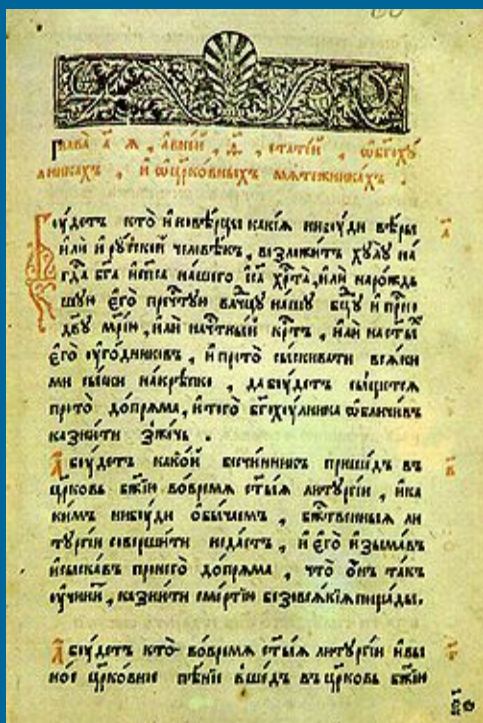 Глава̀ а҃ я, а в не́й, ѳ҃, стате́й, ѡ бг҃оху́
лникахъ, и҆ ѡ цр҃ко́вныхъ мяте́жникахъ.
Бꙋ́детъ кто̀ и҆нове́рцы какі́я нибꙋди ве́ры
и҆лѝ и҆ рꙋ́ской человѣ́къ, возложи́тъ хꙋлꙋ̀ на
гда̀ бг҃а и҆ сп҃са на́шего і҆с҃а хр҃та̀, и҆лѝ наро́ждь
шꙋю є҆го̀ пречⷭ҇тꙋю влⷣчцꙋ нашꙋ бц҃ꙋ и҆ присно
дв҃ꙋ мр҃і́ю, и҆лѝ на чⷭ҇тны́й крⷭ҇тъ, и҆лѝ на ст҃ы́хъ
є҆го̀ ᲂу҆го́дниковъ, и҆ про то̀ сы́скивати вся́ки
ми сы́ски накре́пко, да бꙋ́детъ сы́щется
про то̀ допря́ма, и҆ того̀ бг҃охꙋ́лника ѡ҆бличи́въ
казни́ти зже́чь.
А҆ бꙋ́детъ како́й безчи́нникъ прише́дъ въ
цр҃ковь бж҃ію во вре́мя ст҃ы́я литꙋргі́и, и҆ ка
ки́мъ нибꙋди ѻ҆бы́чаемъ, бжⷭ҇твенныя ли
тꙋргі́и соверши́ти неда́стъ, и҆ є҆го̀ и҆зыма́въ
и҆ сыска́въ про него̀ допря́ма, что̀ ѻ҆нъ та́къ
ᲂу҆чини́тъ, казни́ти сме́ртію безо вся́кія поща́ды.
А҆ бꙋ́детъ кто̀ во вре́мя ст҃ы́я литꙋргі́и и҆ в ы҆
но́е цр҃ко́вное пе́ніе вше́дъ въ цр҃ковь бж҃ію